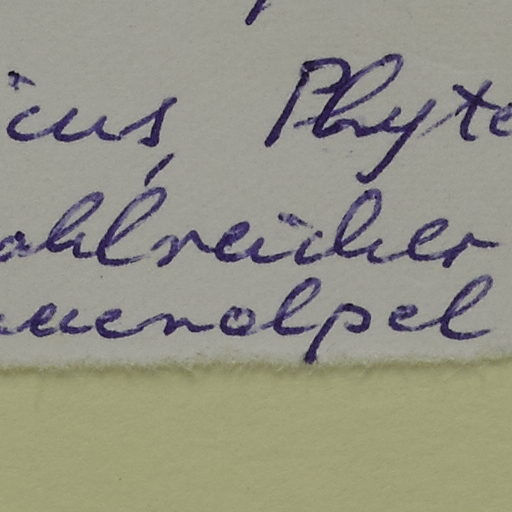 icus, Phyte
ahlreicher
auenolpel